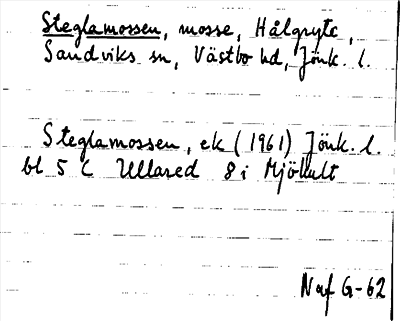 Steglamossen, mosse, Hålgryte,
Sandviks sn, Västbo hd, Jönk. l.
Steglamossen, ek (1961) Jönk. l.
bl 5 C Ullared 8 i Mjöhult
Naf G-62